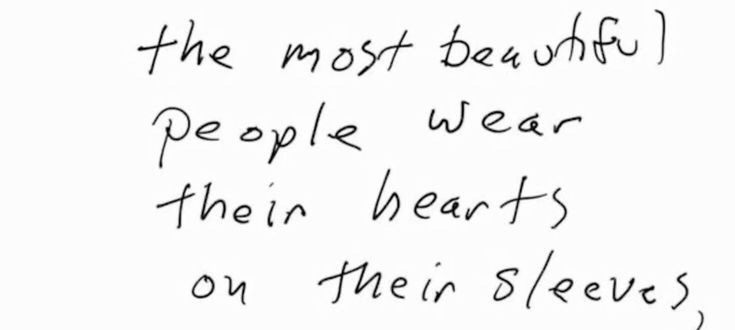 the most beautiful
people wear
their hearts
on their sleeves,